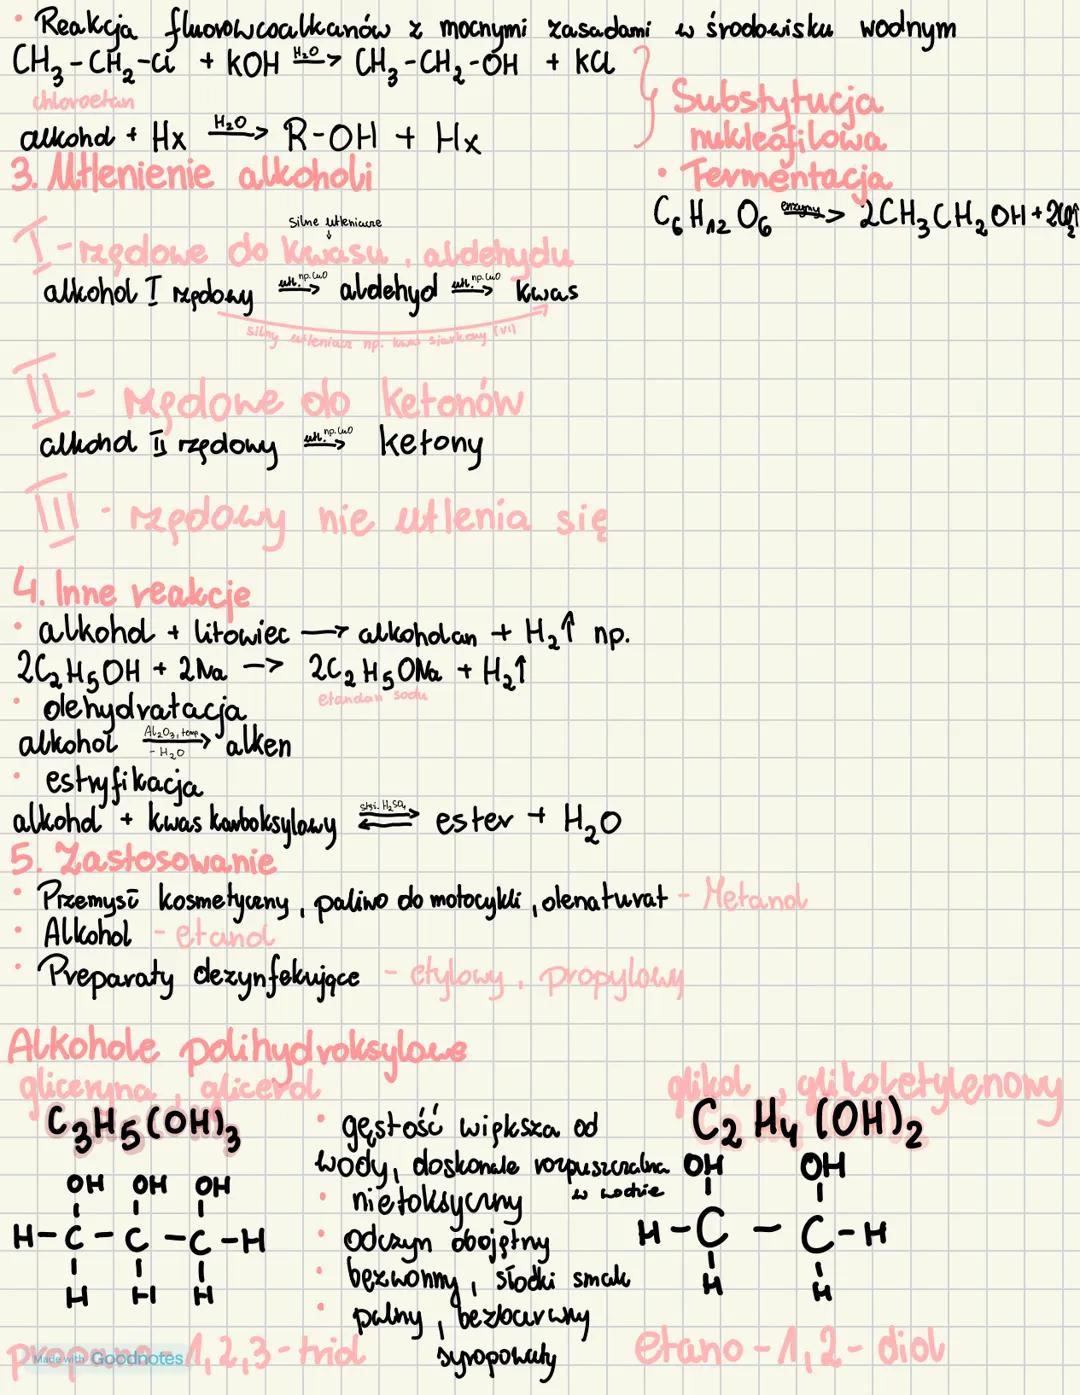 • Reakcja fluorowcoalkanów z mocnymi zasadami w środowisku wodnym
CH₃-CH₂-Cl + KOH H₂O→ CH₃-CH₂-OH + KCl
chloroetan
alkohol + Hx H₂O→ R-OH + Hx
Substytucja
nukleofilowa
3. Utlenienie alkoholi
• Fermentacja
C₆H₁₂O₆ enzymy→ 2CH₃CH₂OH + 2CO₂↑
silne utleniacze
↓
I-rzędowe do kwasu, aldehydu
alkohol I rzędowy utl. np. CuO→ aldehyd utl. np. CuO→ kwas
silny utleniacz np. kwas siarkowy (VI)
II- rzędowe do ketonów
alkohol II rzędowy utl. np. CuO→ ketony
III - rzędowy nie utlenia się
4. Inne reakcje
• alkohol + litowiec → alkoholan + H₂↑ np.
2C₂H₅OH + 2Na → 2C₂H₅ONa + H₂↑
etanolan sodu
• dehydratacja
alkohol Al₂O₃, temp -H₂O→ alken
• estryfikacja
alkohol + kwas karboksylowy stęż. H₂SO₄⇌ ester + H₂O
5. Zastosowanie
• Przemysł kosmetyczny, paliwo do motocykli, denaturat - Metanol
• Alkohol - etanol
• Preparaty dezynfekujące - etylowy, propylowy
Alkohole polihydroksylowe
gliceryna, glicerol
C₃H₅(OH)₃
OH OH OH
H-C-C-C-H
H H H
propano-1,2,3-triol
• gęstość większa od
wody, doskonale rozpuszczalna
w wodzie
• nietoksyczny
• odczyn obojętny
• bezwonny, słodki smak
• palny, bezbarwny
syropowaty
glikol, glikoletylenowy
C₂H₄(OH)₂
OH OH
H-C-C-H
H H
etano-1,2-diol
Made with Goodnotes